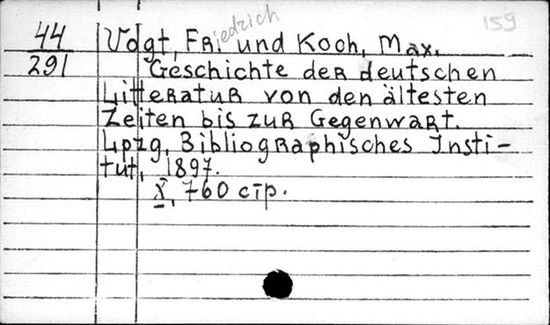 159
44 Vogt, Friedrich und Koch, Max.
291 Geschichte der deutschen
Litteratur von den ältesten
Zeiten bis zur Gegenwart.
Lpzg, Bibliographisches Insti-
tut, 1897.
X, 760 стр.